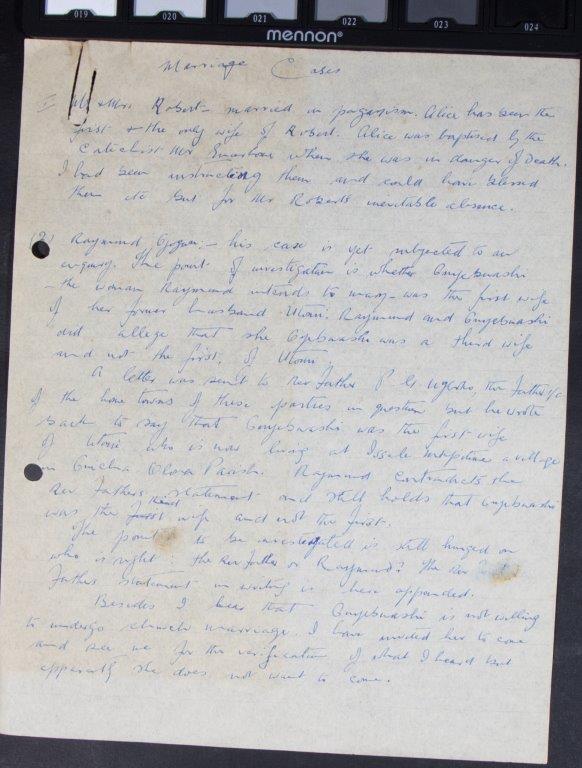 019 020 021 022 023 024
mennon®
Marriage Cases
I Mr & Mrs Robert — married in paganism. Alice has been the
first & the only wife of Robert. Alice was baptised by the
Catechist Mr when she was in danger of Death.
I had been instructing them and could have blessed
them etc but for Mr Robert's inevitable absence.
(2) Raymund :— his case is yet subjected to an
enquiry. The point of investigation is whether Onyebuashi
— the woman Raymund intends to marry — was the first wife
of her former husband Utomi. Raymund and Onyebuashi
did allege that she Onyebuashi was a third wife
and not the first, of Utomi.
A letter was sent to Rev Father P. G. Ugboko the Father i/c
of the home towns of these parties in question but he wrote
back to say that Onyebuashi was the first wife
of Utomi who is now living at Issele a village
in Onicha Olona Parish. Raymund contradicts the
Rev Father's statement and still holds that Onyebuashi
was the first third wife and not the first.
The point to be investigated is still hinged on
who is right: the Rev Father or Raymund? The Rev
Father's statement in writing is here appended.
Besides I hear that Onyebuashi is not willing
to undergo church marriage. I have invited her to come
and see me for the verification of what I heard but
apparently she does not want to come.